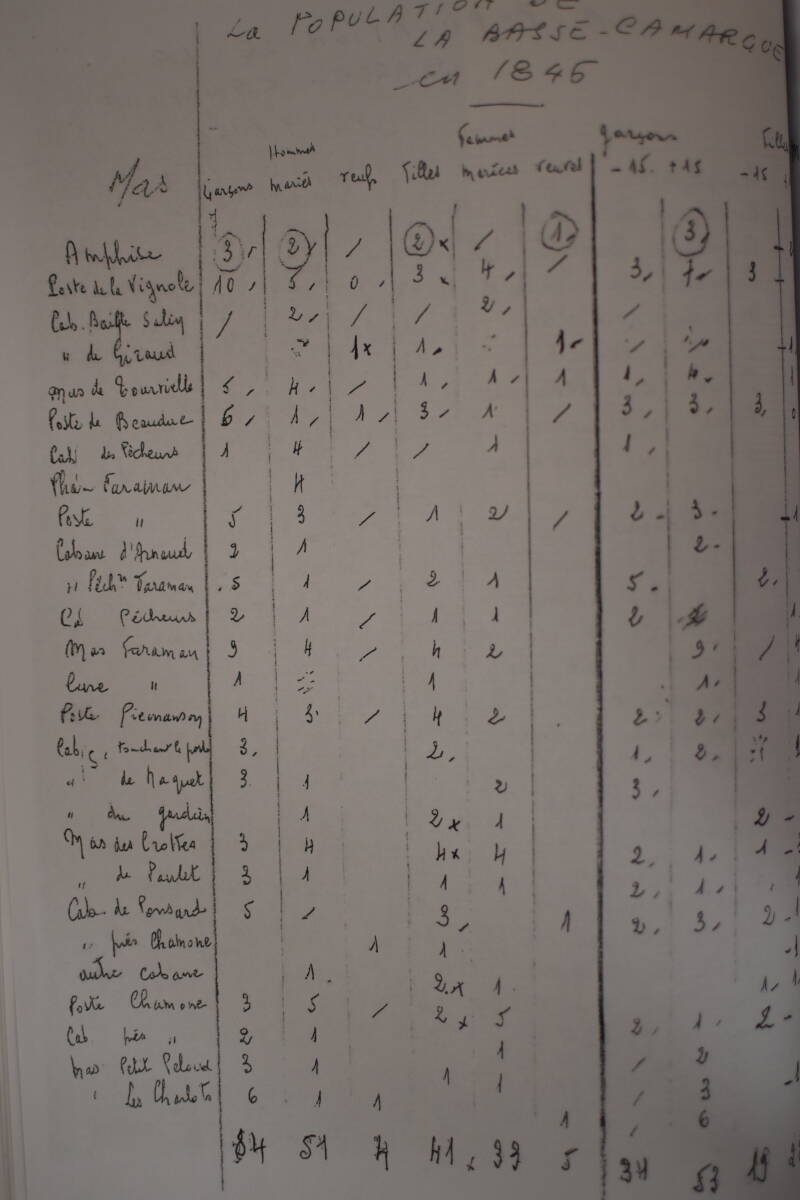 La POPULATION DE
LA BASSE-CAMARGUE
en 1845
Hommes Femmes garçons Filles
Mas garçons mariés veufs Filles mariées veuves -15 +15 -15
Amphise 3 2 / 2 x / 1 3
Poste de la Vignole 10 5 0 3 x 4 / 3 7 3
Cab. Baisse Salin / 2 / / 2 /
" de Giraud 1x 1 1
mas de Tourvielle 5 4 / 1 1 1 1 4
Poste de Beauduc 6 1 1 3 1 / 3 3 3
Cab des Pêcheurs 1 4 / / 1 1
Pha- Faraman 4
Poste " 5 3 / 1 2 / 2 3
Cabane d'Arnaud 2 1 2
" Pêchrs Faraman 5 1 / 2 1 5 2
Cd Pêcheurs 2 1 / 1 1 2
Mas Faraman 9 4 / 4 2 9 /
Cure " 1 1 1
Poste Piemanson 4 3 / 4 2 2 2 3
Cab, touchant le poste 3 2 1 2
" de Naquet 3 1 2 3
" du gardien 1 2 x 1 2
Mas des Crottes 3 4 4 x 4 2 1 1
" de Paulet 3 1 1 1 2 1
Cab. de Ponsard 5 / 3 1 2 3 2
" près Chamone 1 1
autre cabane 1 2 x 1 1
Poste Chamone 3 5 / 2 x 5 2 1 2
Cab près " 2 1 1 / 2
Mas Petit Peloux 3 1 1 1 / 3
" Les Charlots 6 1 1 1 / 6
84 51 7 41 x 33 5 34 53 19